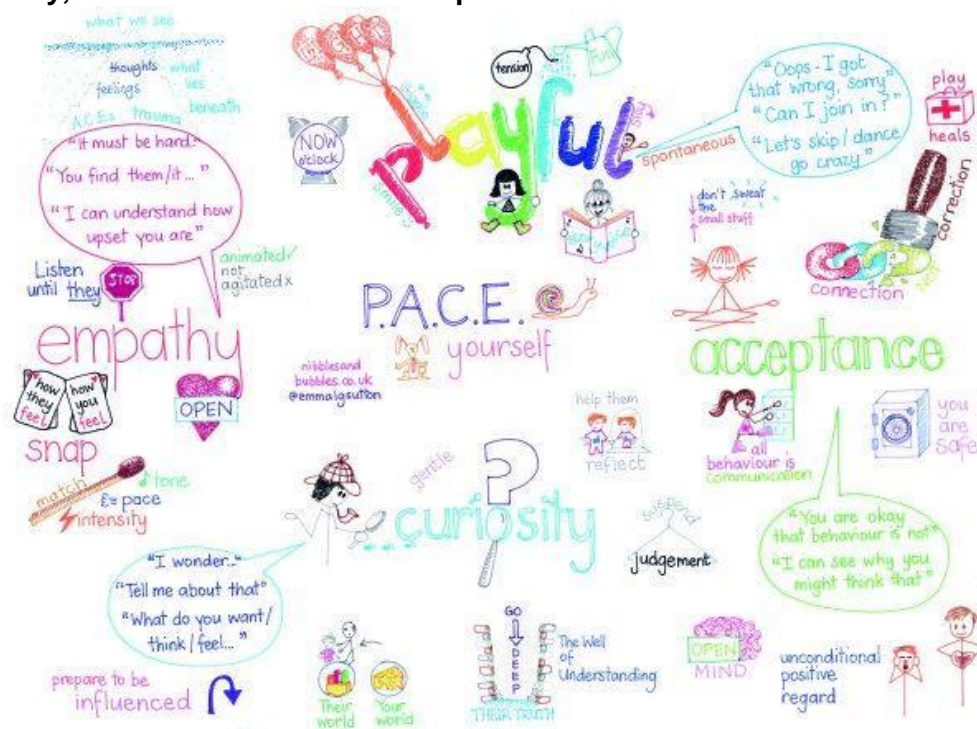 what we see
thoughts
feelings
what
lies
beneath
A.C.Es trauma
"It must be hard."
"You find them/it..."
"I can understand how
upset you are"
Listen
until they
STOP
animated ✓
not
agitated x
empathy
how
they
feel
how
you
feel
OPEN
snap
match
tone
pace
intensity
LIGHT
NOW
o'clock
tension
fun
playful
smile
spontaneous
"Oops - I got
that wrong, sorry"
"Can I join in?"
"Let's skip/dance
go crazy"
play
heals
connection
connection
don't sweat
the
small stuff
P.A.C.E.
yourself
nibblesand
bubbles.co.uk
@emmalgsutton
acceptance
all
behaviour is
communication
you
are
safe
"You are okay
that behaviour is not"
"I can see why you
might think that"
help them
reflect
gentle
?
curiosity
suspend
judgement
"I wonder.."
"Tell me about that"
"What do you want/
think/feel..."
prepare to be
influenced
Their
world
Your
world
GO
DEEP
THEIR TRUTH
The Well
of
Understanding
OPEN
MIND
unconditional
positive
regard